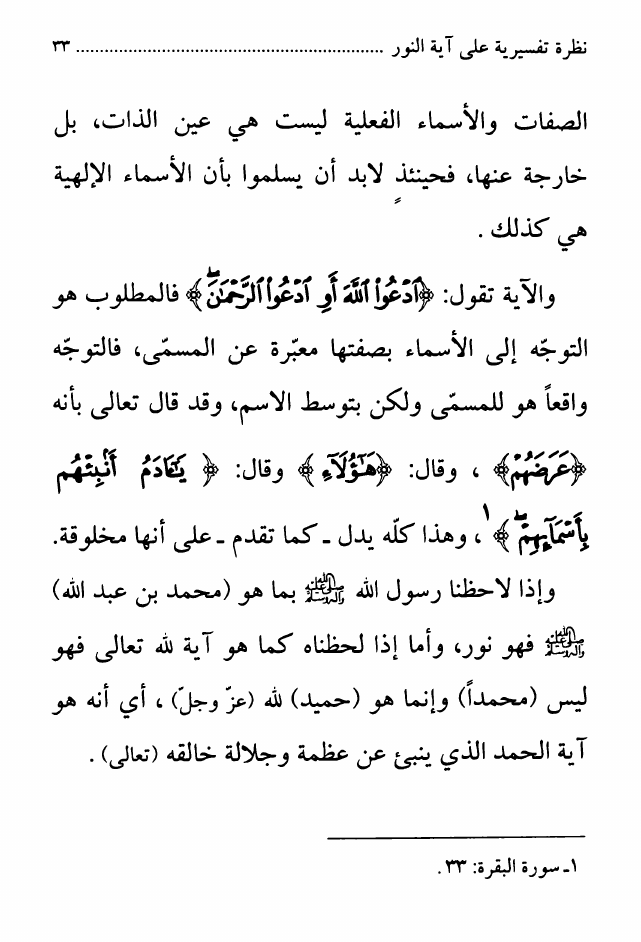 نظرة تفسيرية على آية النور ................................................................. ٣٣
الصفات والأسماء الفعلية ليست هي عين الذات، بل
خارجة عنها، فحينئذٍ لابد أن يسلموا بأن الأسماء الإلهية
هي كذلك .
والآية تقول: ﴿ٱدْعُوا۟ ٱللَّهَ أَوِ ٱدْعُوا۟ ٱلرَّحْمَٰنَۖ﴾ فالمطلوب هو
التوجّه إلى الأسماء بصفتها معبّرة عن المسمّى، فالتوجّه
واقعاً هو للمسمّى ولكن بتوسط الاسم، وقد قال تعالى بأنه
﴿عَرَضَهُمْ﴾ ، وقال: ﴿هَٰٓؤُلَآءِ﴾ وقال: ﴿ يَٰٓـَٔادَمُ أَنۢبِئْهُم
بِأَسْمَآئِهِمْۖ ﴾١ ، وهذا كلّه يدل ـ كما تقدم ـ على أنها مخلوقة.
وإذا لاحظنا رسول الله صلى الله عليه وآله وسلم بما هو (محمد بن عبد الله)
صلى الله عليه وآله وسلم فهو نور، وأما إذا لحظناه كما هو آية لله تعالى فهو
ليس (محمداً) وإنما هو (حميد) لله (عزّ وجلّ) ، أي أنه هو
آية الحمد الذي ينبئ عن عظمة وجلالة خالقه (تعالى) .
١ـ سورة البقرة: ٣٣ .